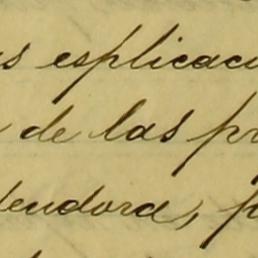 as esplicacu
de las pr
dendora, p